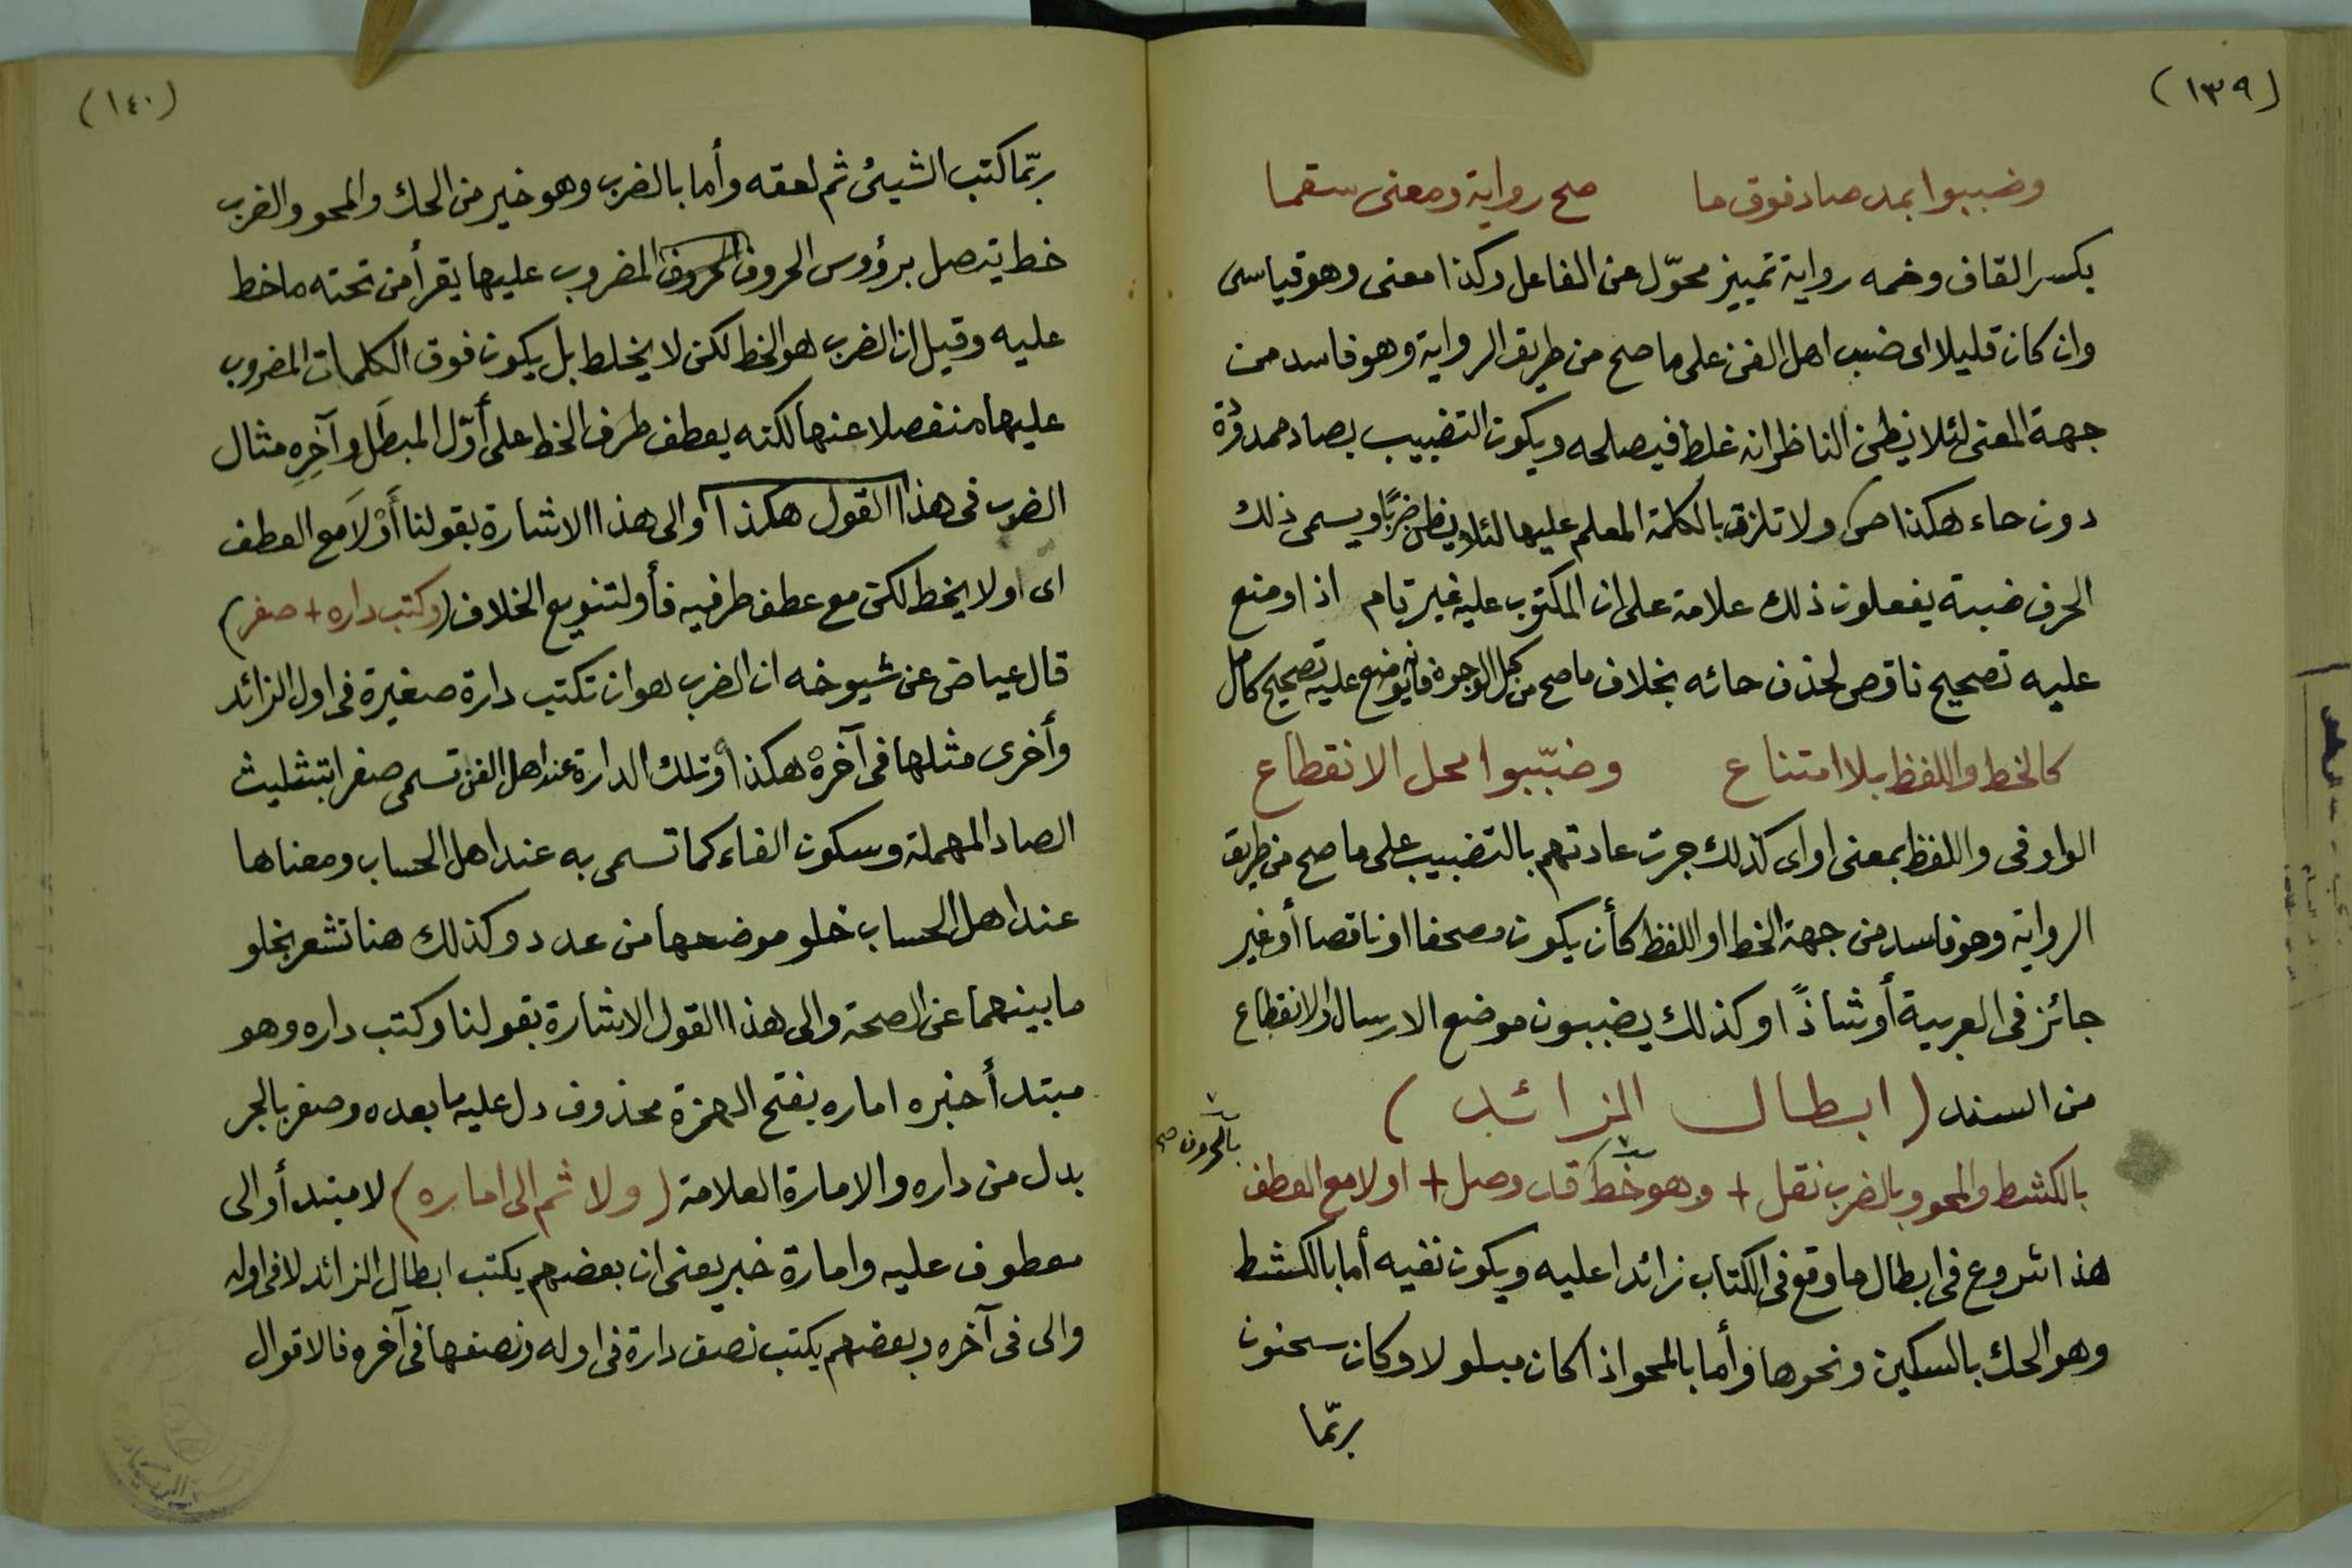 (١٣٩)
وضببوا بمد صاد فوق ما صح رواية ومعنى سقما
بكسر القاف وضمه رواية تمييز محوّل عن الفاعل وكذا معنى وهو قياسى
وان كان قليلا اى ضبب اهل الفن على ما صح من طريق الرواية وهو فاسد من
جهة المعنى لئلا يظن الناظر انه غلط فيصلحه ويكون التضبيب بصاد ممدودة
دون حاء هكذا صـ ولا تلزق بالكلمة المعلم عليها لئلا يظن ضربًا ويسمى ذلك
الحرف ضبة يفعلون ذلك علامة على ان المكتوب عليه غير تام اذا وضع
عليه تصحيح ناقص لحذف حائه بخلاف ما صح من كل الوجوه فانه يوضع عليه تصحيح كامل
كالخط واللفظ بلا امتناع وضبّبوا محل الانقطاع
الواو فى واللفظ بمعنى او اى كذلك جرت عادتهم بالتضبيب على ما صح من طريق
الرواية وهو فاسد من جهة الخط او اللفظ كأن يكون مصحفا او ناقصا أو غير
جائز فى العربية أو شاذًا وكذلك يضببون موضع الارسال والانقطاع
من السند (ابطال الزائد)
بالكشط والمحو وبالضرب نقل + وهو خط قد وصل + اولا مع العطف
بالحروف صح
هذا شروع فى ابطال ما وقع فى الكتاب زائدا عليه ويكون نفيه أما بالكشط
وهو الحك بالسكين ونحوها وأما بالمحو اذا كان مبلولا وكان سحنون
ربّما
(١٤٠)
ربّما كتب الشيئ ثم لعقه وأما بالضرب وهو خير من الحك والمحو والضرب
خط يتصل برؤوس الحروف الحروف المضروب عليها يقرأ من تحته ما خط
عليه وقيل ان الضرب هو الخط لكن لا يخلط بل يكون فوق الكلمات المضروب
عليها منفصلا عنها لكنه يعطف طرف الخط على أوّل المبطَل وآخِرِه مثال
الضرب فى هذا القول هكذا والى هذا الاشارة بقولنا أَوْلَا مع العطف
اى اولا يخط لكن مع عطف طرفيه فأو لتنويع الخلاف (وكتب داره + صفر)
قال عياض عن شيوخه ان الضرب هو ان تكتب دارة صغيرة فى اول الزائد
وأخرى مثلها فى آخره هكذا ه وتلك الدارة عند اهل الفن تسمى صفرا بتثليث
الصاد المهملة وسكون الفاء كما تسمى به عند اهل الحساب ومعناها
عند اهل الحساب خلو موضعها من عدد وكذلك هنا تشعر بخلو
ما بينهما عن الصحة والى هذا القول الاشارة بقولنا وكتب داره وهو
مبتدأ خبره اماره بفتح الهمزة محذوف دل عليه ما بعده وصفر بالجر
بدل من داره والامارة العلامة (ولا ثم الى اماره) لا مبتدأ والى
معطوف عليه وامارة خبر يعنى ان بعضهم يكتب ابطال الزائد لا فى اوله
والى فى آخره وبعضهم يكتب نصف دارة فى اوله ونصفها فى آخره فالاقوال